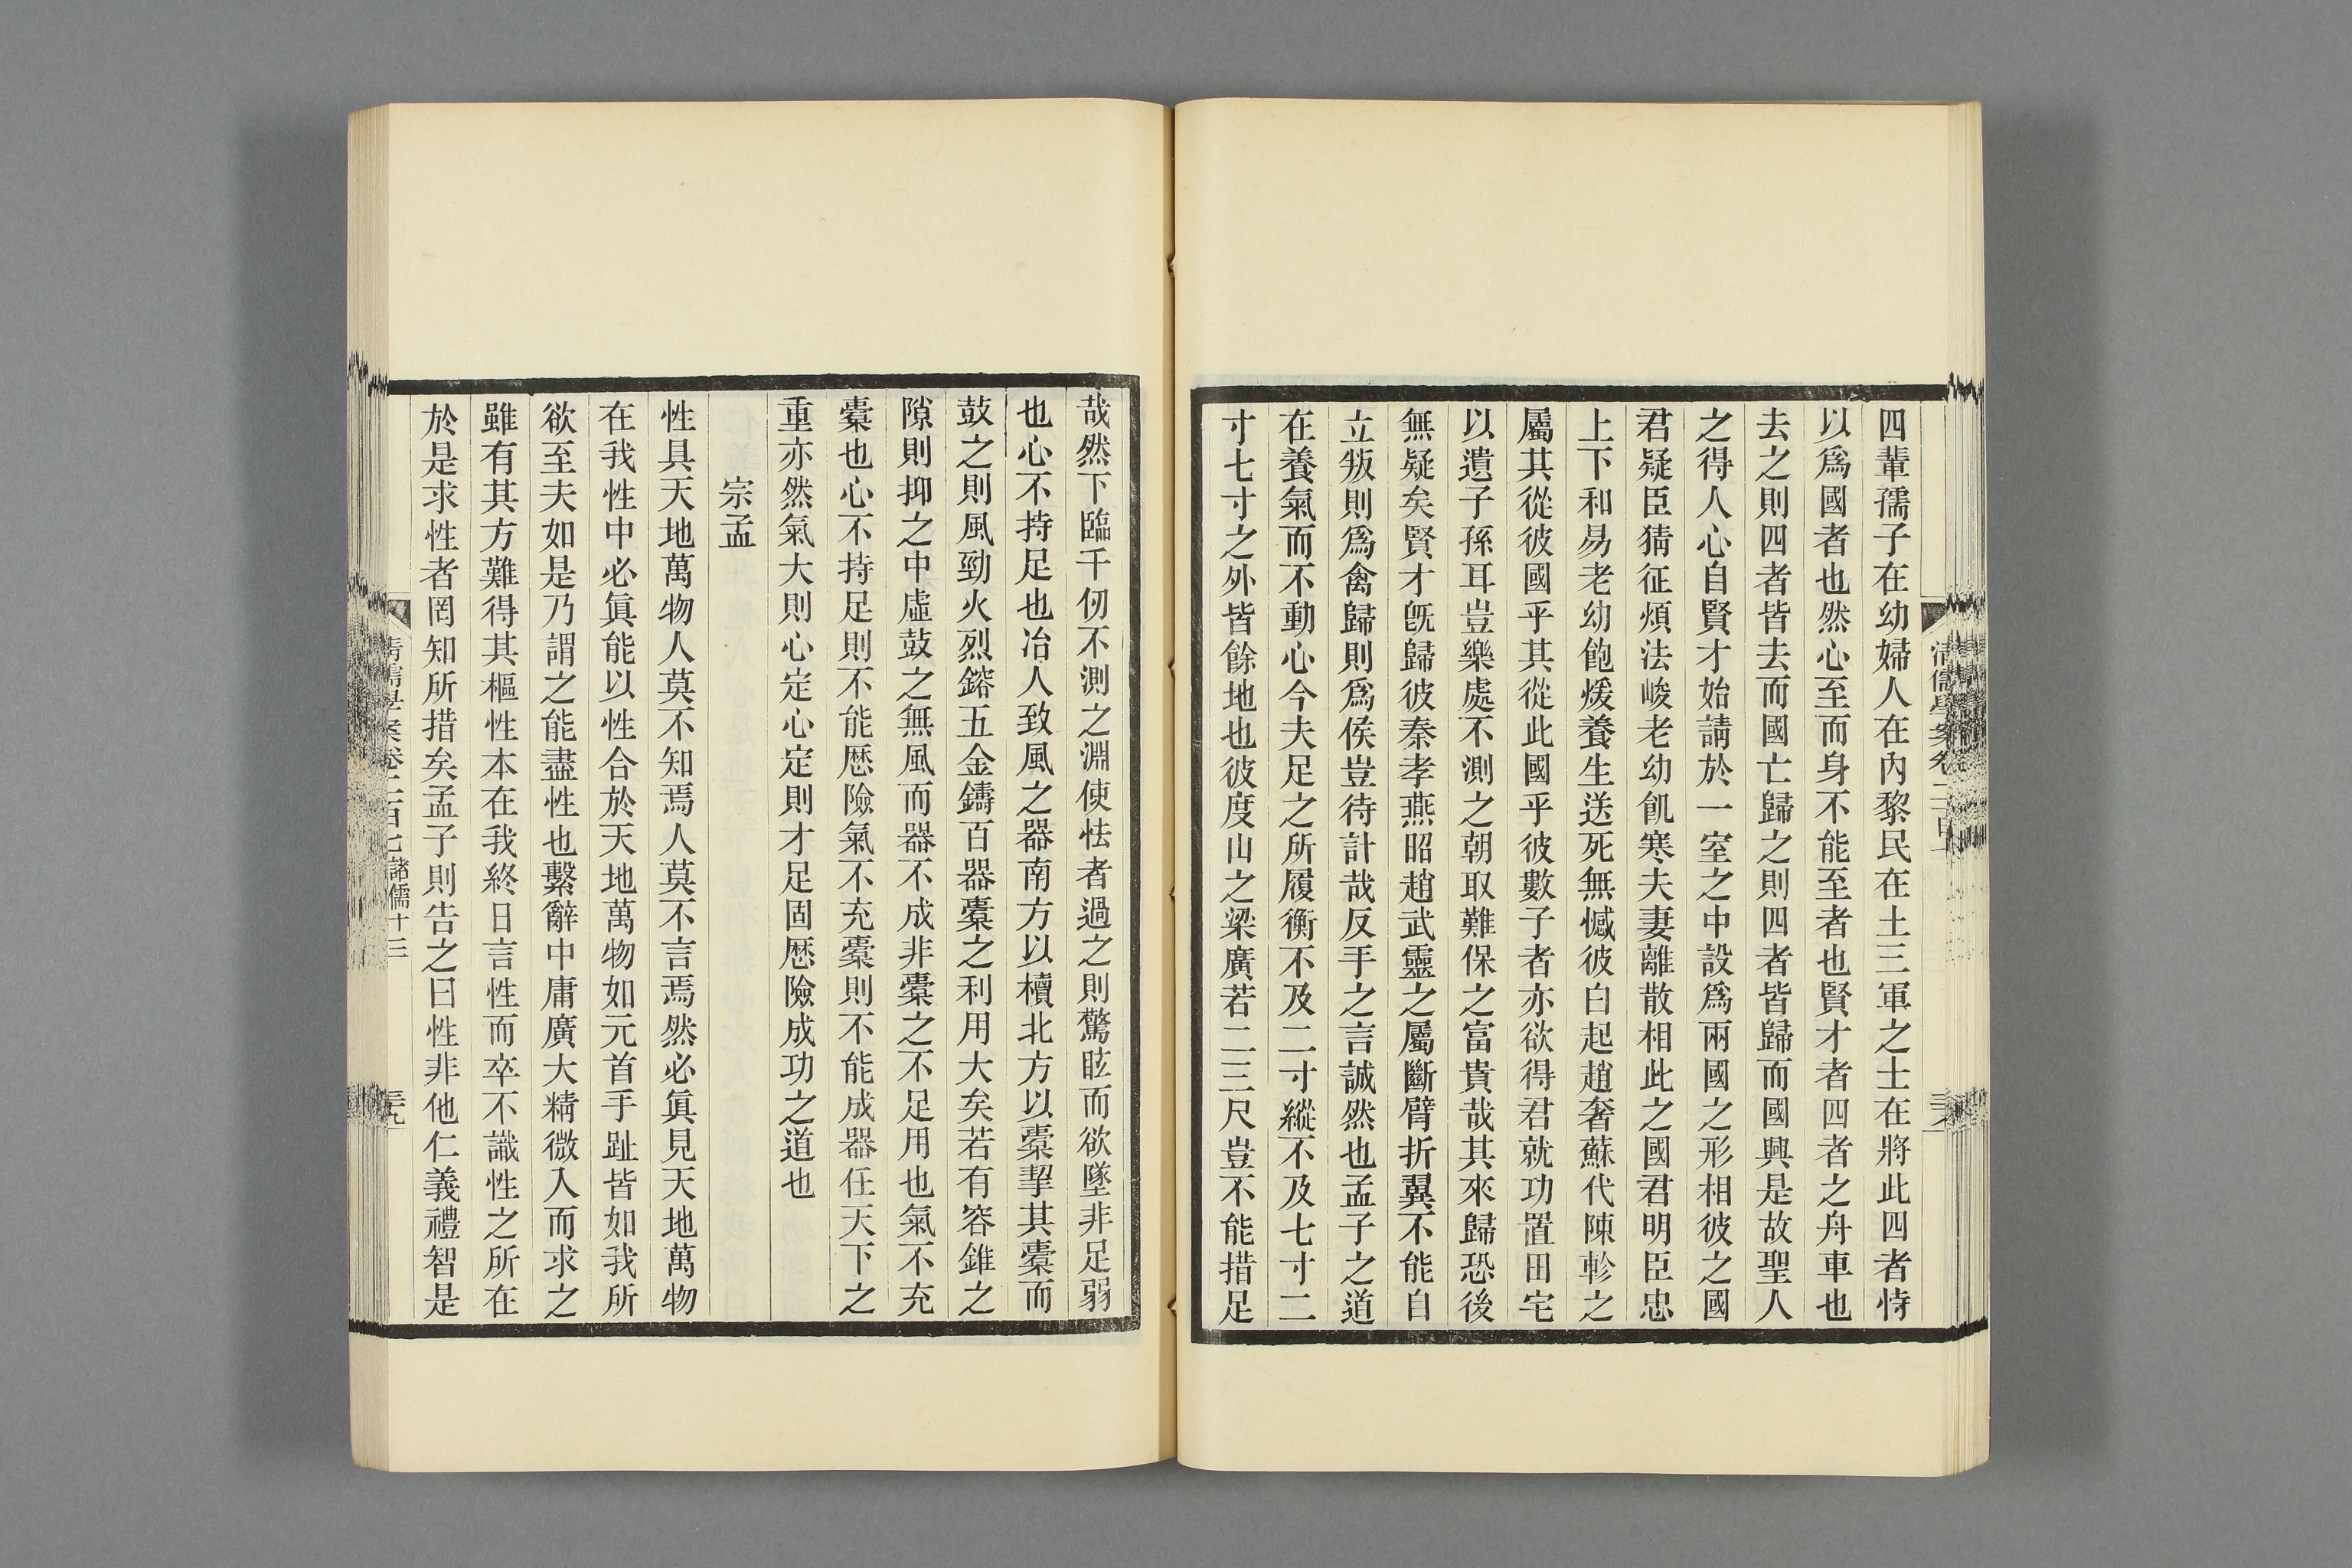 四輩孺子在幼婦人在內黎民在土三軍之士在將此四者恃
以爲國者也然心至而身不能至者也賢才者四者之舟車也
去之則四者皆去而國亡歸之則四者皆歸而國興是故聖人
之得人心自賢才始請於一室之中設爲兩國之形相彼之國
君疑臣猜征煩法峻老幼飢寒夫妻離散相此之國君明臣忠
上下和易老幼飽煖養生送死無憾彼白起趙奢蘇代陳軫之
屬其從彼國乎其從此國乎彼數子者亦欲得君就功置田宅
以遺子孫耳豈樂處不測之朝取難保之富貴哉其來歸恐後
無疑矣賢才旣歸彼秦孝燕昭趙武靈之屬斷臂折翼不能自
立叛則爲禽歸則爲侯豈待計哉反手之言誠然也孟子之道
在養氣而不動心今夫足之所履衡不及二寸縱不及七寸二
寸七寸之外皆餘地也彼度山之梁廣若二三尺豈不能措足
哉然下臨千仞不測之淵使怯者過之則驚眩而欲墜非足弱
也心不持足也冶人致風之器南方以櫝北方以橐挈其橐而
鼓之則風勁火烈鎔五金鑄百器橐之利用大矣若有容錐之
隙則抑之中虛鼓之無風而器不成非橐之不足用也氣不充
橐也心不持足則不能歷險氣不充橐則不能成器任天下之
重亦然氣大則心定心定則才足固歷險成功之道也
宗孟
性具天地萬物人莫不知焉人莫不言焉然必眞見天地萬物
在我性中必眞能以性合於天地萬物如元首手趾皆如我所
欲至夫如是乃謂之能盡性也繫辭中庸廣大精微入而求之
雖有其方難得其樞性本在我終日言性而卒不識性之所在
於是求性者罔知所措矣孟子則告之曰性非他仁義禮智是
清儒學案卷二百七 諸儒十三